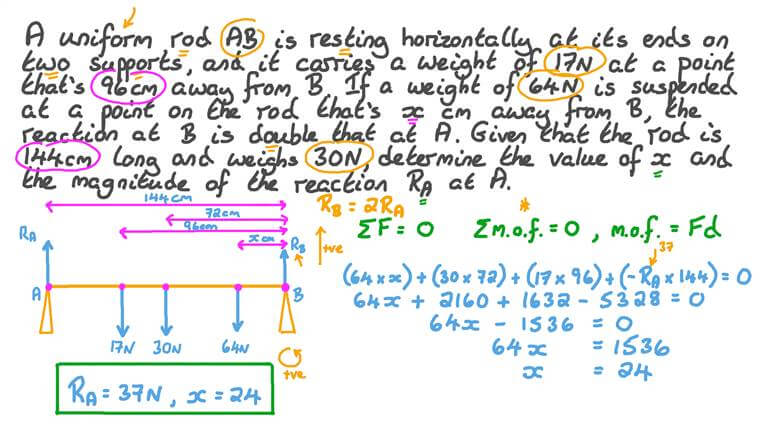 A uniform rod AB is resting horizontally at its ends on
two supports, and it carries a weight of 17N at a point
that's 96cm away from B. If a weight of 64N is suspended
at a point on the rod that's x cm away from B, the
reaction at B is double that at A. Given that the rod is
144cm long and weighs 30N, determine the value of x and
the magnitude of the reaction R_A at A.
144cm
72cm
96cm
x cm
R_A
R_B
A
B
17N 30N 64N
+ve
R_A = 37N, x = 24
R_B = 2R_A
+ve
*
ΣF = 0 Σm.o.f. = 0, m.o.f. = Fd
37
(64 × x) + (30 × 72) + (17 × 96) + (-R_A × 144) = 0
64x + 2160 + 1632 - 5328 = 0
64x - 1536 = 0
64x = 1536
x = 24